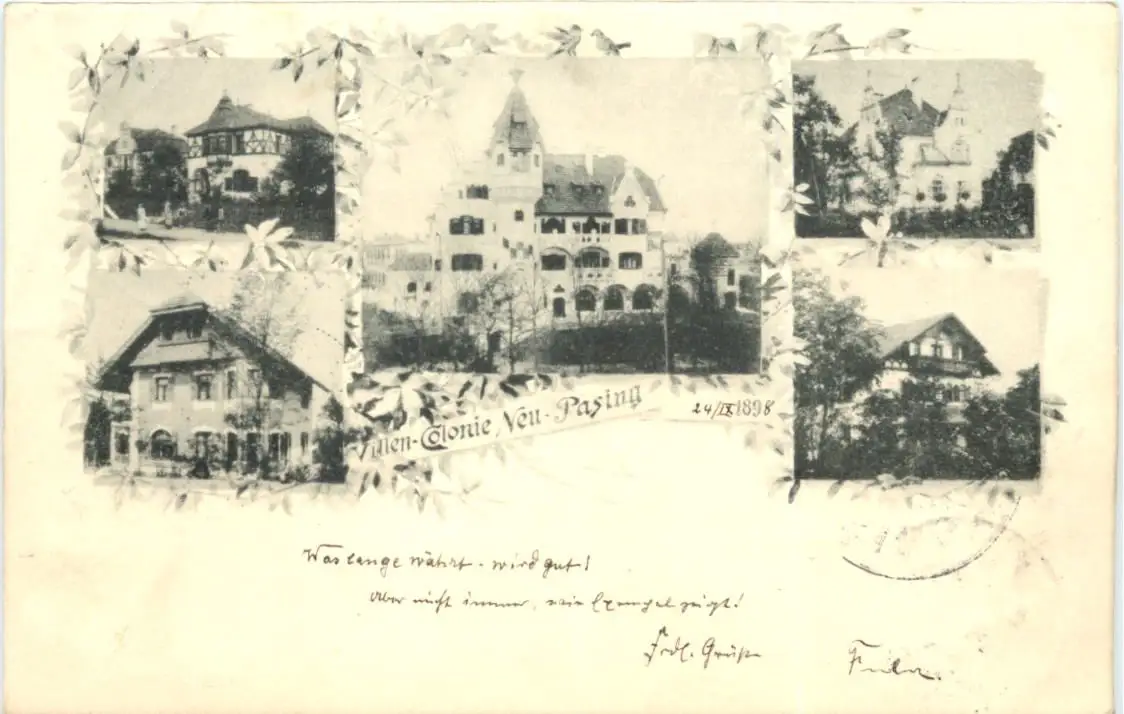 Villen-Colonie Neu-Pasing
24/IX 1898
Was lange währt - wird gut!
Aber nicht immer, wie Exempel zeigt!
Frdl. Grüße